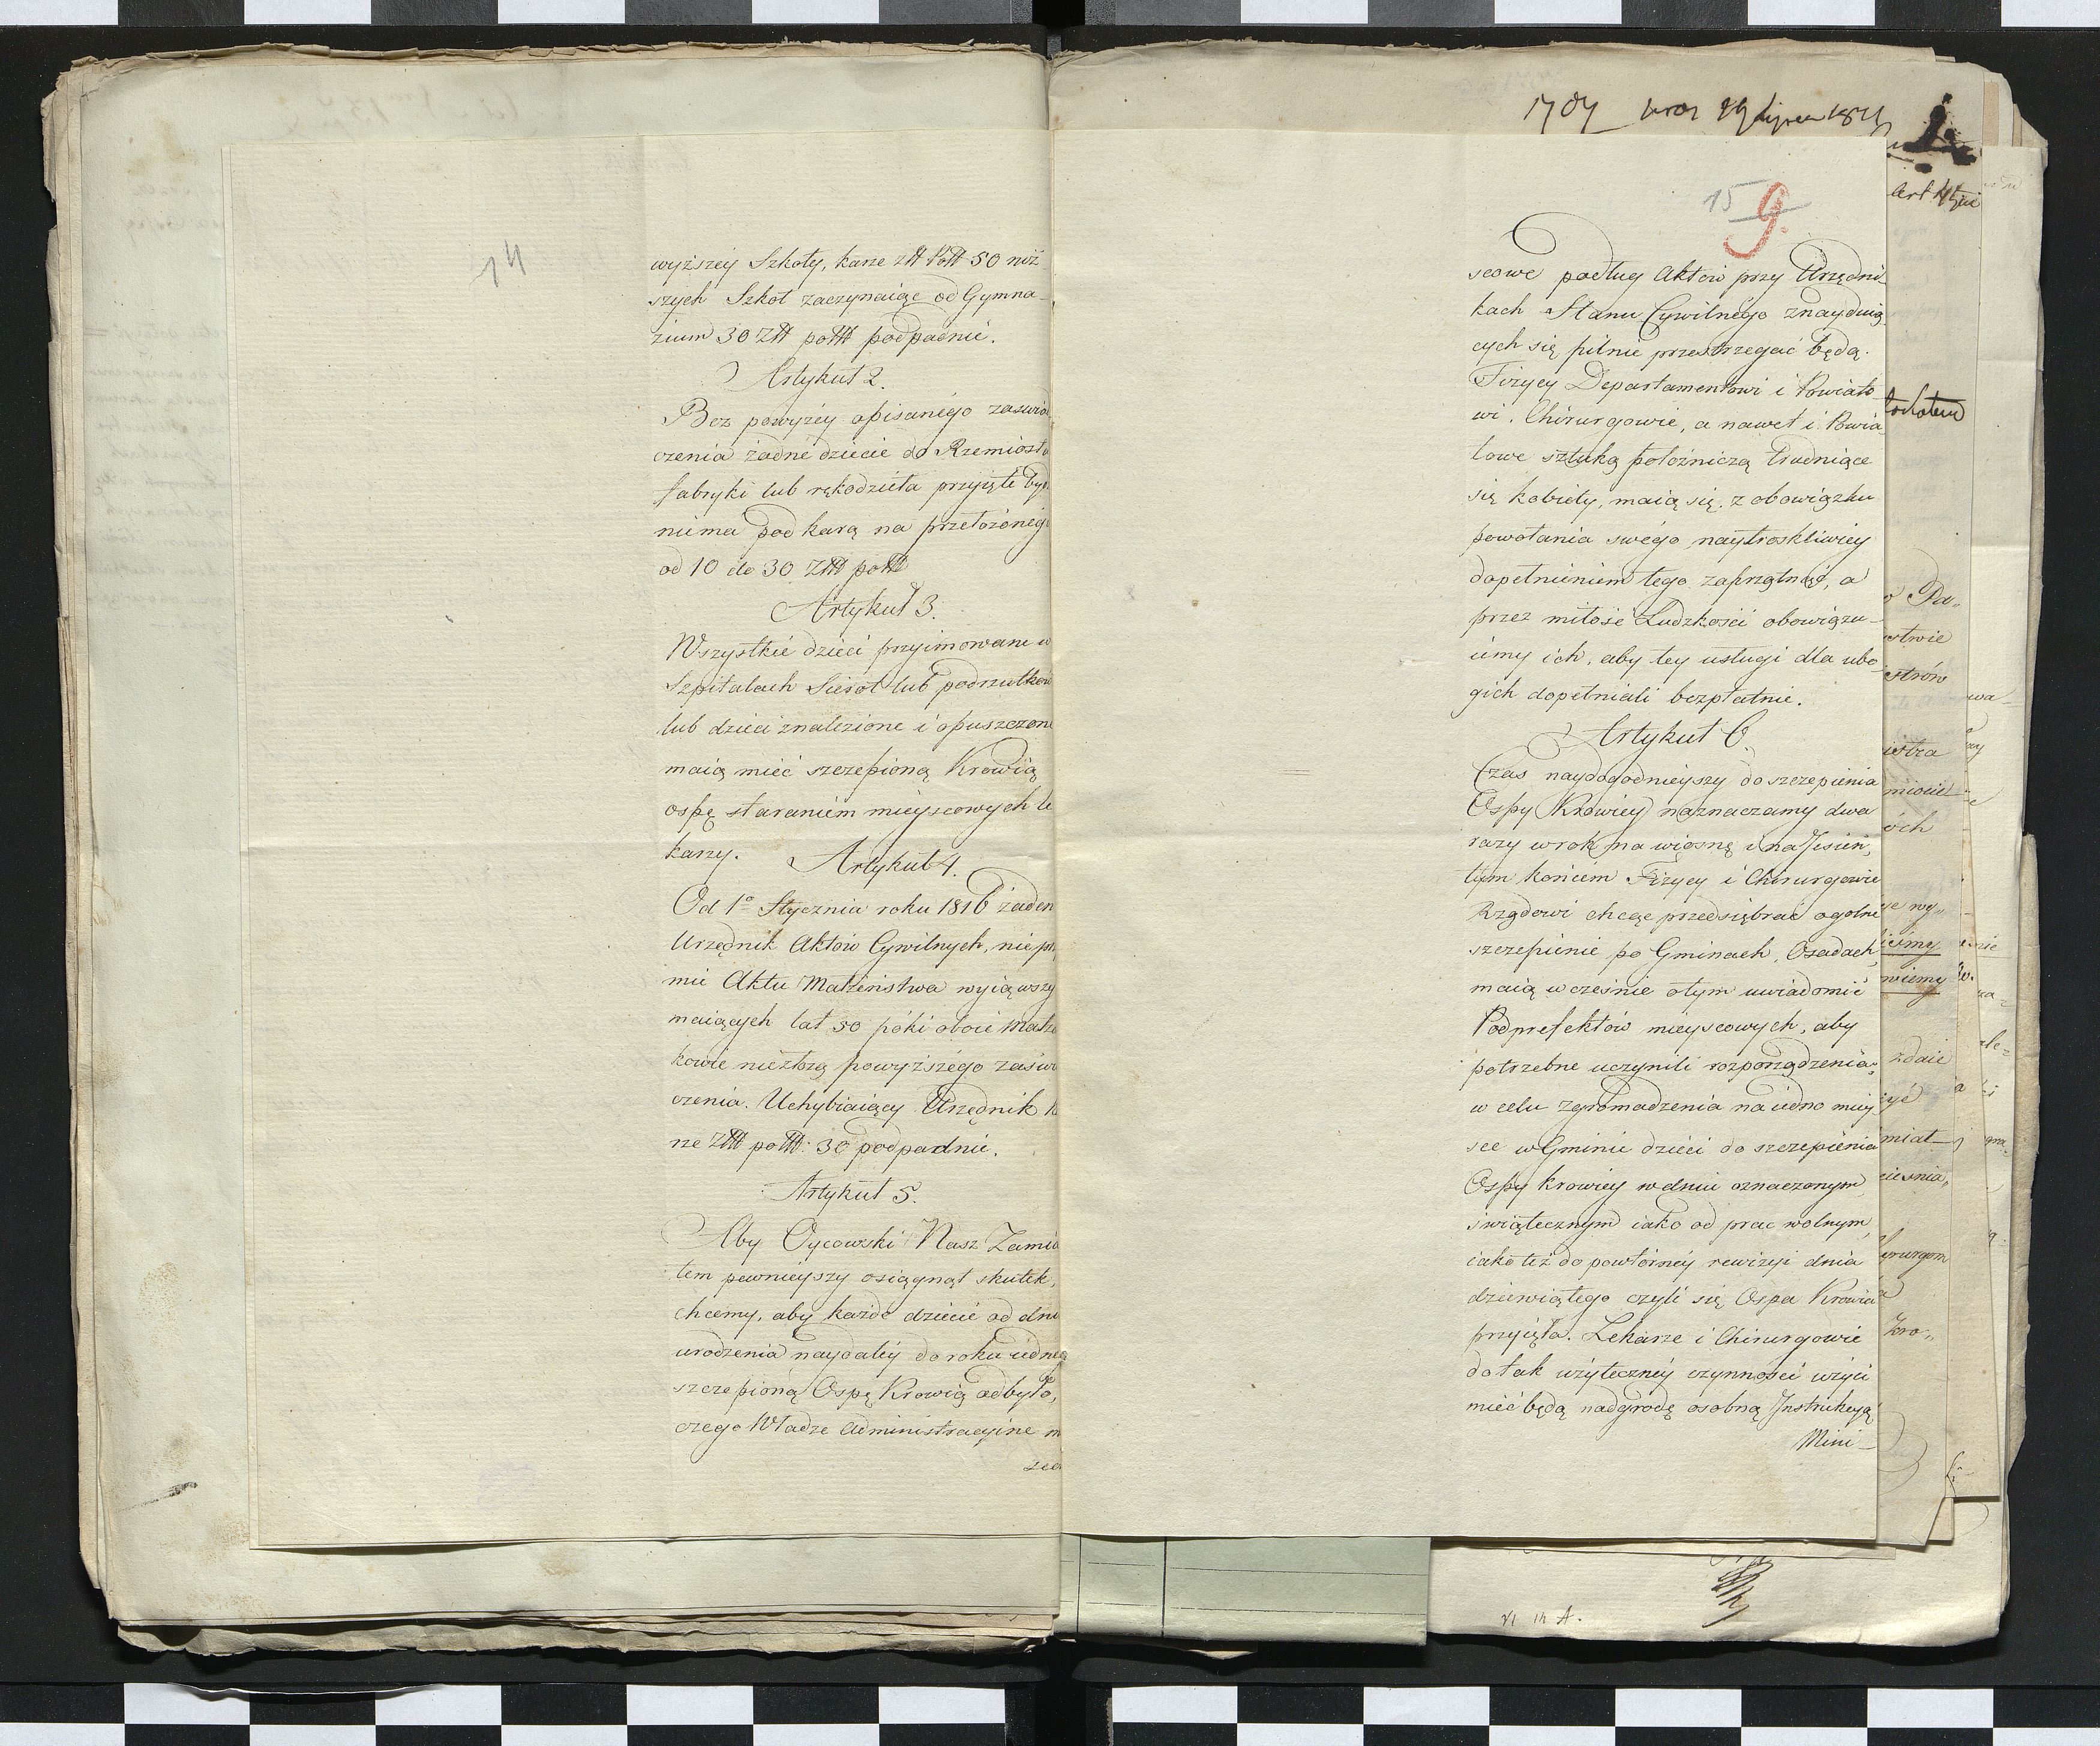 14
wyższey Szkoły, karze złł Poll 50 niż
szych Szkoł zaczynaiąc od Gymna-
zium 30 Złł polll podpadnie.
Artykuł 2.
Bez powyżey opisanégo zaświa
czenia żadne dziecie do Rzemiosła
fabryki lub rękodzieła przyięte być
niema pod karą na przełożonégo
od 10 do 30 Złł poll
Artykuł 3.
Wszystkie dzieci przyimowane w
Szpitalach Sierot lub podrzutków
lub dzieci znalezione i opuszczone
maią mieć szczepioną Krowią
ospę staraniem mieyscowych le
karzy.
Artykuł 4.
Od 1º Stycznia roku 1816 żaden
Urzędnik Aktów Cywilnych, nie prz
mie Aktu Małżeństwa wyiąwszy
maiących lat 50 póki oboie małżo
kowie niezłożą powyższégo zaświ
czenia. Uchybiaiący Urzędnik k
rze Złł polll: 30 podpadnie.
Artykuł 5.
Aby Oycowski Nasz Zamia
tem pewnieyszy osiągnął skutek,
chcemy, aby każde dziecie od dnia
urodzenia naydaléy do roku iedneg
szczepioną Ospę Krowią odbyło,
czego Władze Administracyine m
sco
1707 29 lipca
15 9.
scowe podług Aktów przy Urzędni-
kach Stanu Cywilnégo znayduią-
cych się pilnie przestrzegać będą.
Fizycy Departamentowi i Powiato-
wi, Chirurgowie, a nawet i Powia-
towe sztuką położniczą trudniące
się kobiety, maią się, z obowiązku
powołania swégo naytroskliwiey
dopełnieniem tego zaprzątnąć, a
przez miłość Ludzkości obowiązu-
iemy ich, aby tey usługi dla ubo-
gich dopełniali bezpłatnie.
Artykuł 6.
Czas naydogodnieyszy do szczepienia
Ospy Krowiey naznaczamy dwa
razy w rok na wiosnę i na Jesień,
tym końcem Fizycy i Chirurgowie
Rządowi chcąc przedsiębrać ogolne
szczepienie po Gminach, Osadach,
maią wcześnie otym uwiadomić
Podprefektów mieyscowych, aby
potrzebne uczynili rozporządzenia
w celu zgromadzenia na iedno miey
sce w Gminie dzieci do szczepienia
Ospy krowiey w dniu oznaczonym
świątecznym iako od prac wolnym,
iako też do powtórnéy rewizyi dnia
dziewiątego czyli się Ospa Krowia
przyięła. Lekarze i Chirurgowie
do tak użyteczney czynności użyci
mieć będą nadgrodę osobną Instrukcyą
Mini-
VI 14 A.